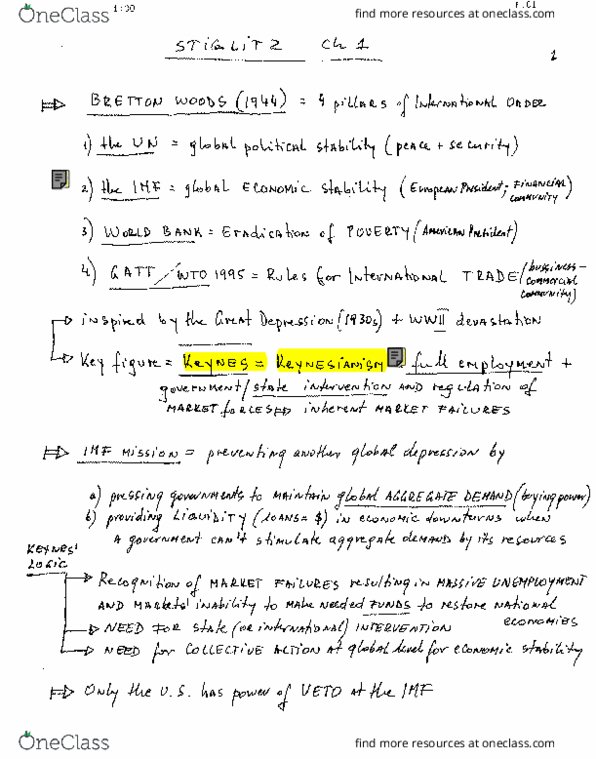 OneClass
1:00
F.C1
find more resources at oneclass.com
STIGLITZ Ch 1
1
BRETTON WOODS (1944) = 4 pillars of International ORDER
1) the UN = global political stability (peace + security)
2) the IMF = global ECONOMIC stability (European President; FINANCIAL COMMUNITY)
3) WORLD BANK = Eradication of POVERTY (American President)
4) GATT/WTO 1995 = Rules for International TRADE (bussiness-commercial community)
inspired by the Great Depression (1930s) + WWII devastation
Key figure = KEYNES = KEYNESIANISM full employment +
government/state intervention AND regulation of
MARKET FORCES inherent MARKET FAILURES
IMF MISSION = preventing another global depression by
a) pressing governments to maintain global AGGREGATE DEMAND (buying power)
b) providing LIQUIDITY (LOANS = $) in economic downturns when
A government can't stimulate aggregate demand by its resources
KEYNES' LOGIC
Recognition of MARKET FAILURES resulting in MASSIVE UNEMPLOYMENT
AND Markets' inability to make needed FUNDS to restore national
economies
NEED FOR State (or international) INTERVENTION
NEED for COLLECTIVE ACTION At global level for economic stability
Only the U.S. has power of VETO at the IMF
OneClass
find more resources at oneclass.com